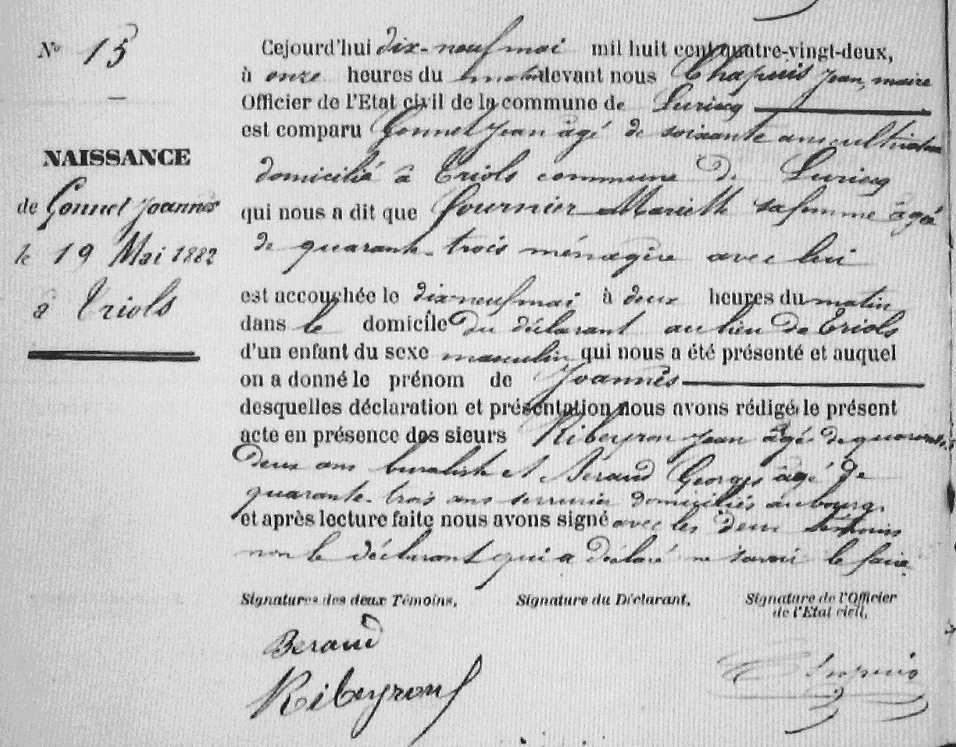 N° 15
NAISSANCE
de Gonnet Joannès
le 19 Mai 1882
à Triols
Cejourd'hui dix-neuf mai mil huit cent quatre-vingt-deux,
à onze heures du matin devant nous Chapuis Jean, maire
Officier de l'Etat civil de la commune de Luriecq
est comparu Gonnet Jean âgé de soixante ans cultivateur
domicilié à Triols commune de Luriecq
qui nous a dit que Fournier Mariette sa femme âgée
de quarante-trois ménagère avec lui
est accouchée le dix-neuf mai à deux heures du matin
dans le domicile du déclarant au lieu de Triols
d'un enfant du sexe masculin qui nous a été présenté et auquel
on a donné le prénom de Joannès
desquelles déclaration et présentation nous avons rédigé le présent
acte en présence des sieurs Ribeyron Jean âgé de quarante
deux ans buraliste et Béraud Georges âgé de
quarante-trois ans serrurier domiciliés au bourg.
et après lecture faite nous avons signé avec les deux témoins
non le déclarant qui a déclaré ne savoir le faire.
Signatures des deux Témoins, Signature du Déclarant, Signature de l'Officier
de l'Etat civil,
Beraud
Ribeyron Chapuis